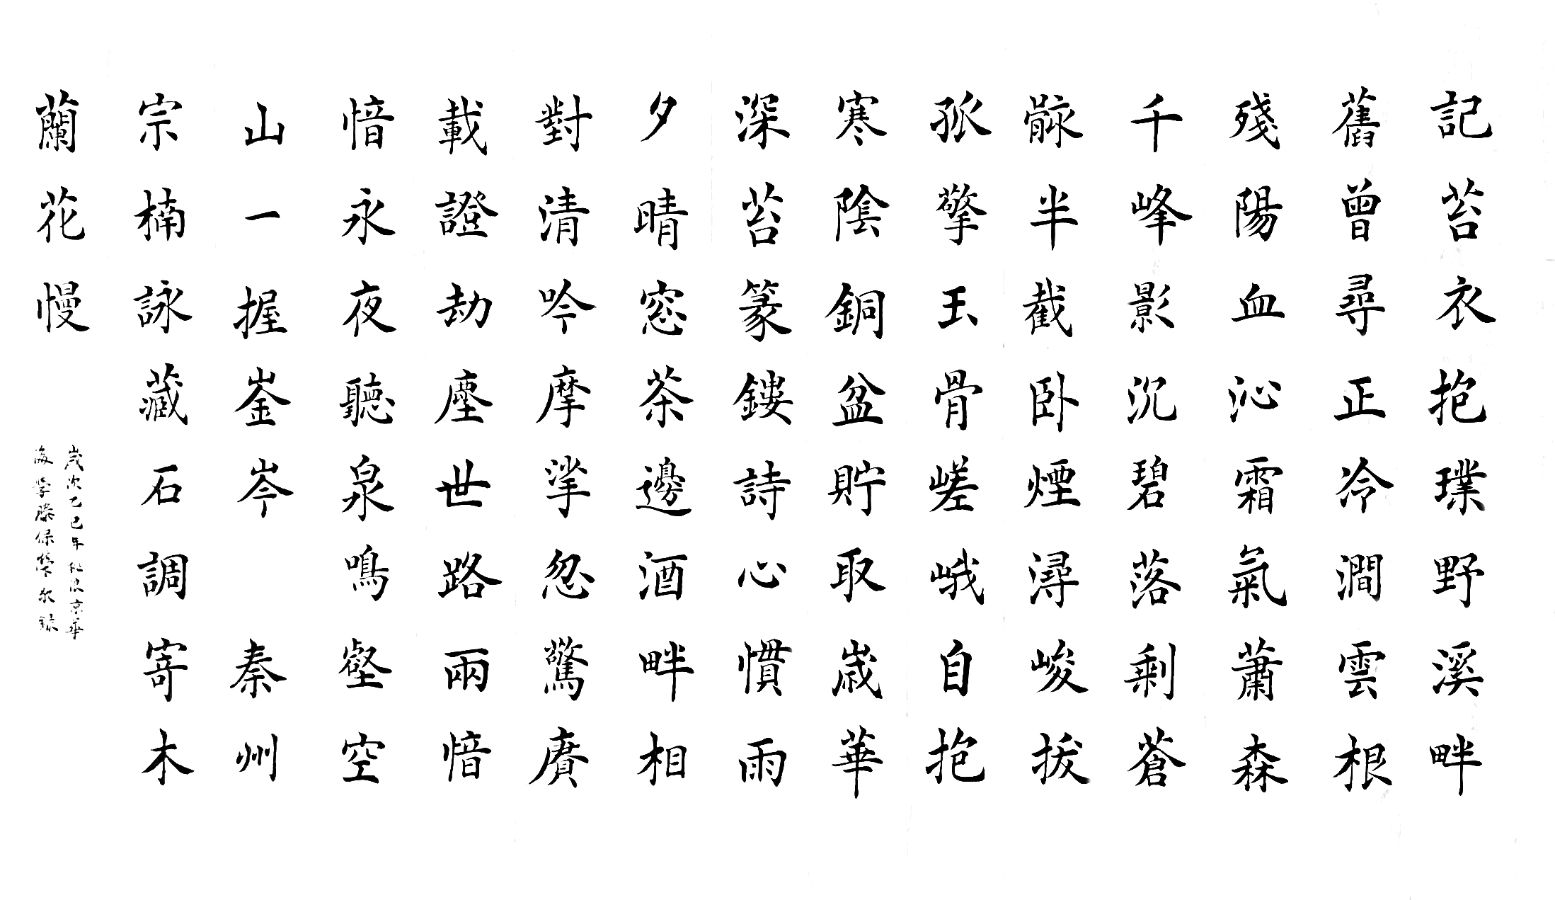 記苔衣抱璞野溪畔
舊曾尋正冷澗雲根
殘陽血沁霜氣蕭森
千峰影沉碧落剩蒼
骸半截臥煙潯峻拔
孤擎玉骨嵯峨自抱
寒陰銅盆貯取歲華
深苔篆鏤詩心慣雨
夕晴窓茶邊酒畔相
對清吟摩挲忽驚賡
載證劫塵世路兩愔
愔永夜聽泉鳴壑空
山一握崟岑 秦州
宗楠詠藏石調寄木
蘭花慢
歲次乙巳年秋京華
滕保榮錄